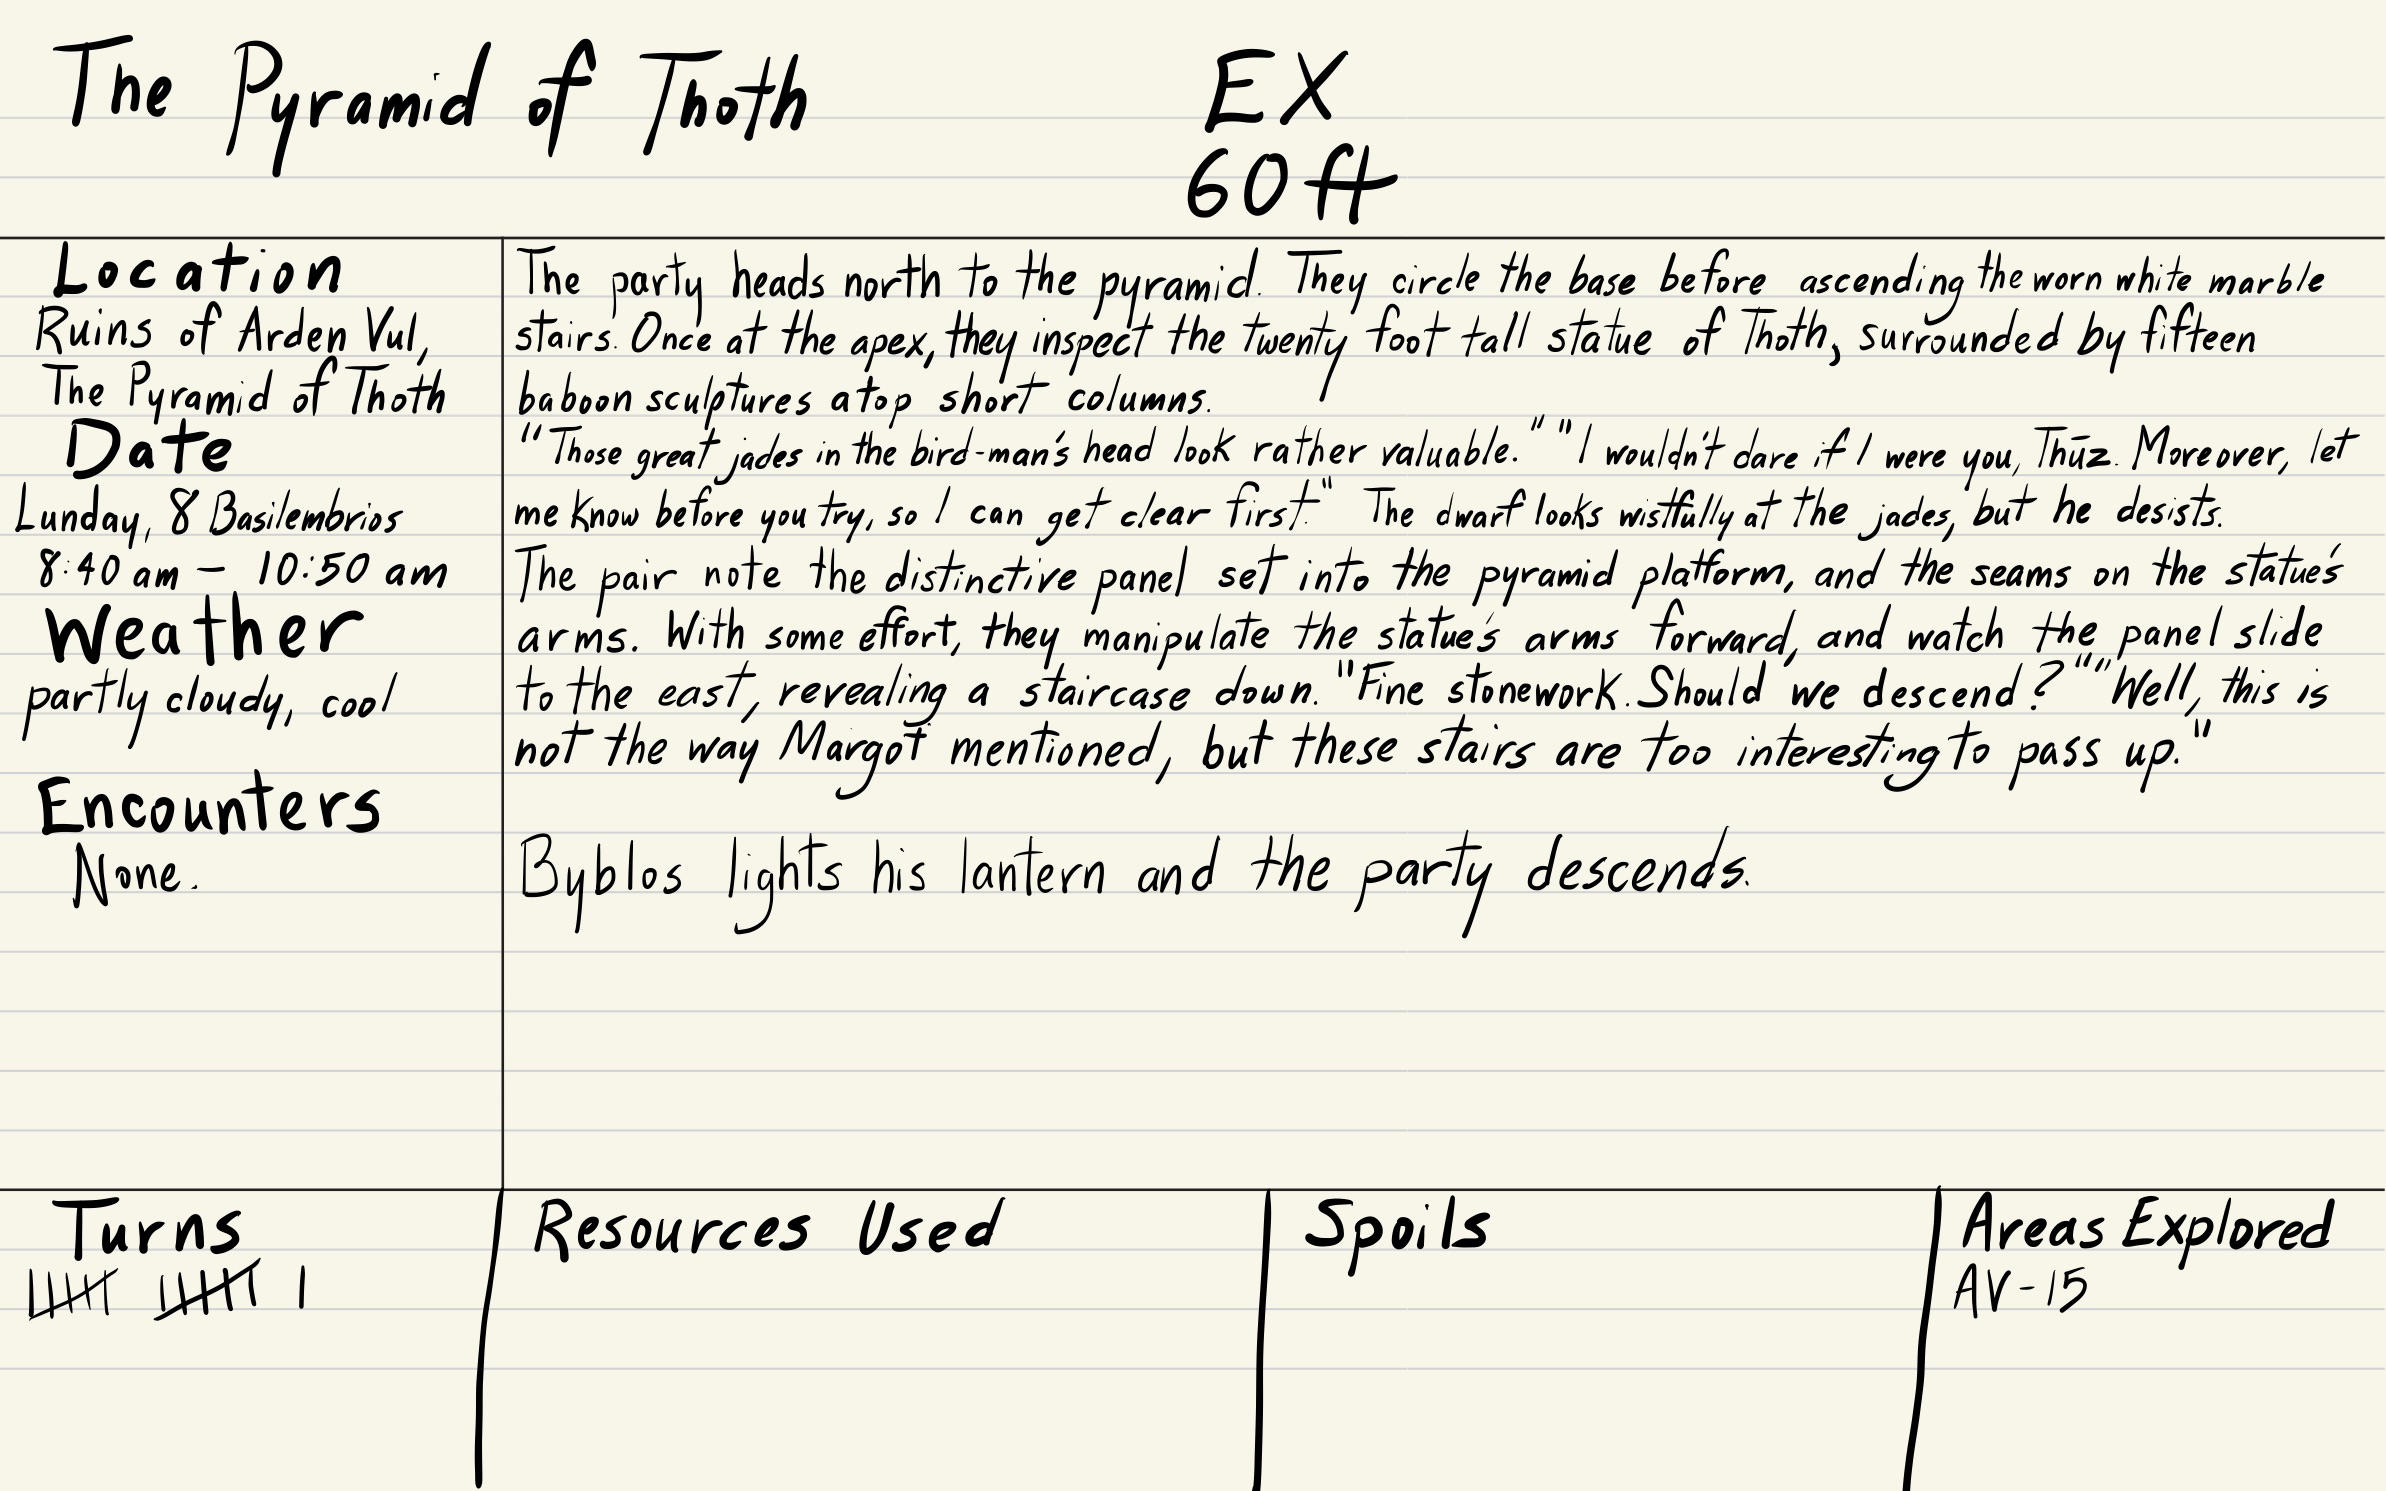 The Pyramid of Thoth
EX
60ft
Location
Ruins of Arden Vul,
The Pyramid of Thoth
Date
Lunday, 8 Basilembrios
8:40 am – 10:50 am
Weather
partly cloudy, cool
Encounters
None.
The party heads north to the pyramid. They circle the base before ascending the worn white marble
stairs. Once at the apex, they inspect the twenty foot tall statue of Thoth, surrounded by fifteen
baboon sculptures atop short columns.
"Those great jades in the bird-man's head look rather valuable." "I wouldn't dare if I were you, Thūz. Moreover, let
me know before you try, so I can get clear first." The dwarf looks wistfully at the jades, but he desists.
The pair note the distinctive panel set into the pyramid platform, and the seams on the statue's
arms. With some effort, they manipulate the statue's arms forward, and watch the panel slide
to the east, revealing a staircase down. "Fine stonework. Should we descend?" "Well, this is
not the way Margot mentioned, but these stairs are too interesting to pass up."
Byblos lights his lantern and the party descends.
Turns
Resources Used
Spoils
Areas Explored
AV-15